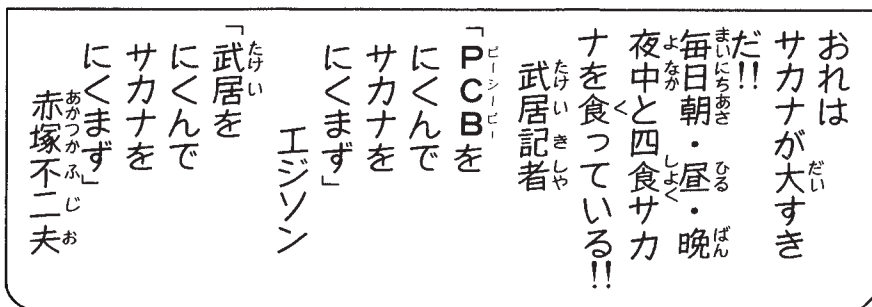 おれは
サカナが大すき
だ!!
毎日朝・昼・晩
夜中と四食サカ
ナを食っている!!
武居記者
「PCBを
にくんで
サカナを
にくまず」
エジソン
「武居を
にくんで
サカナを
にくまず」
赤塚不二夫